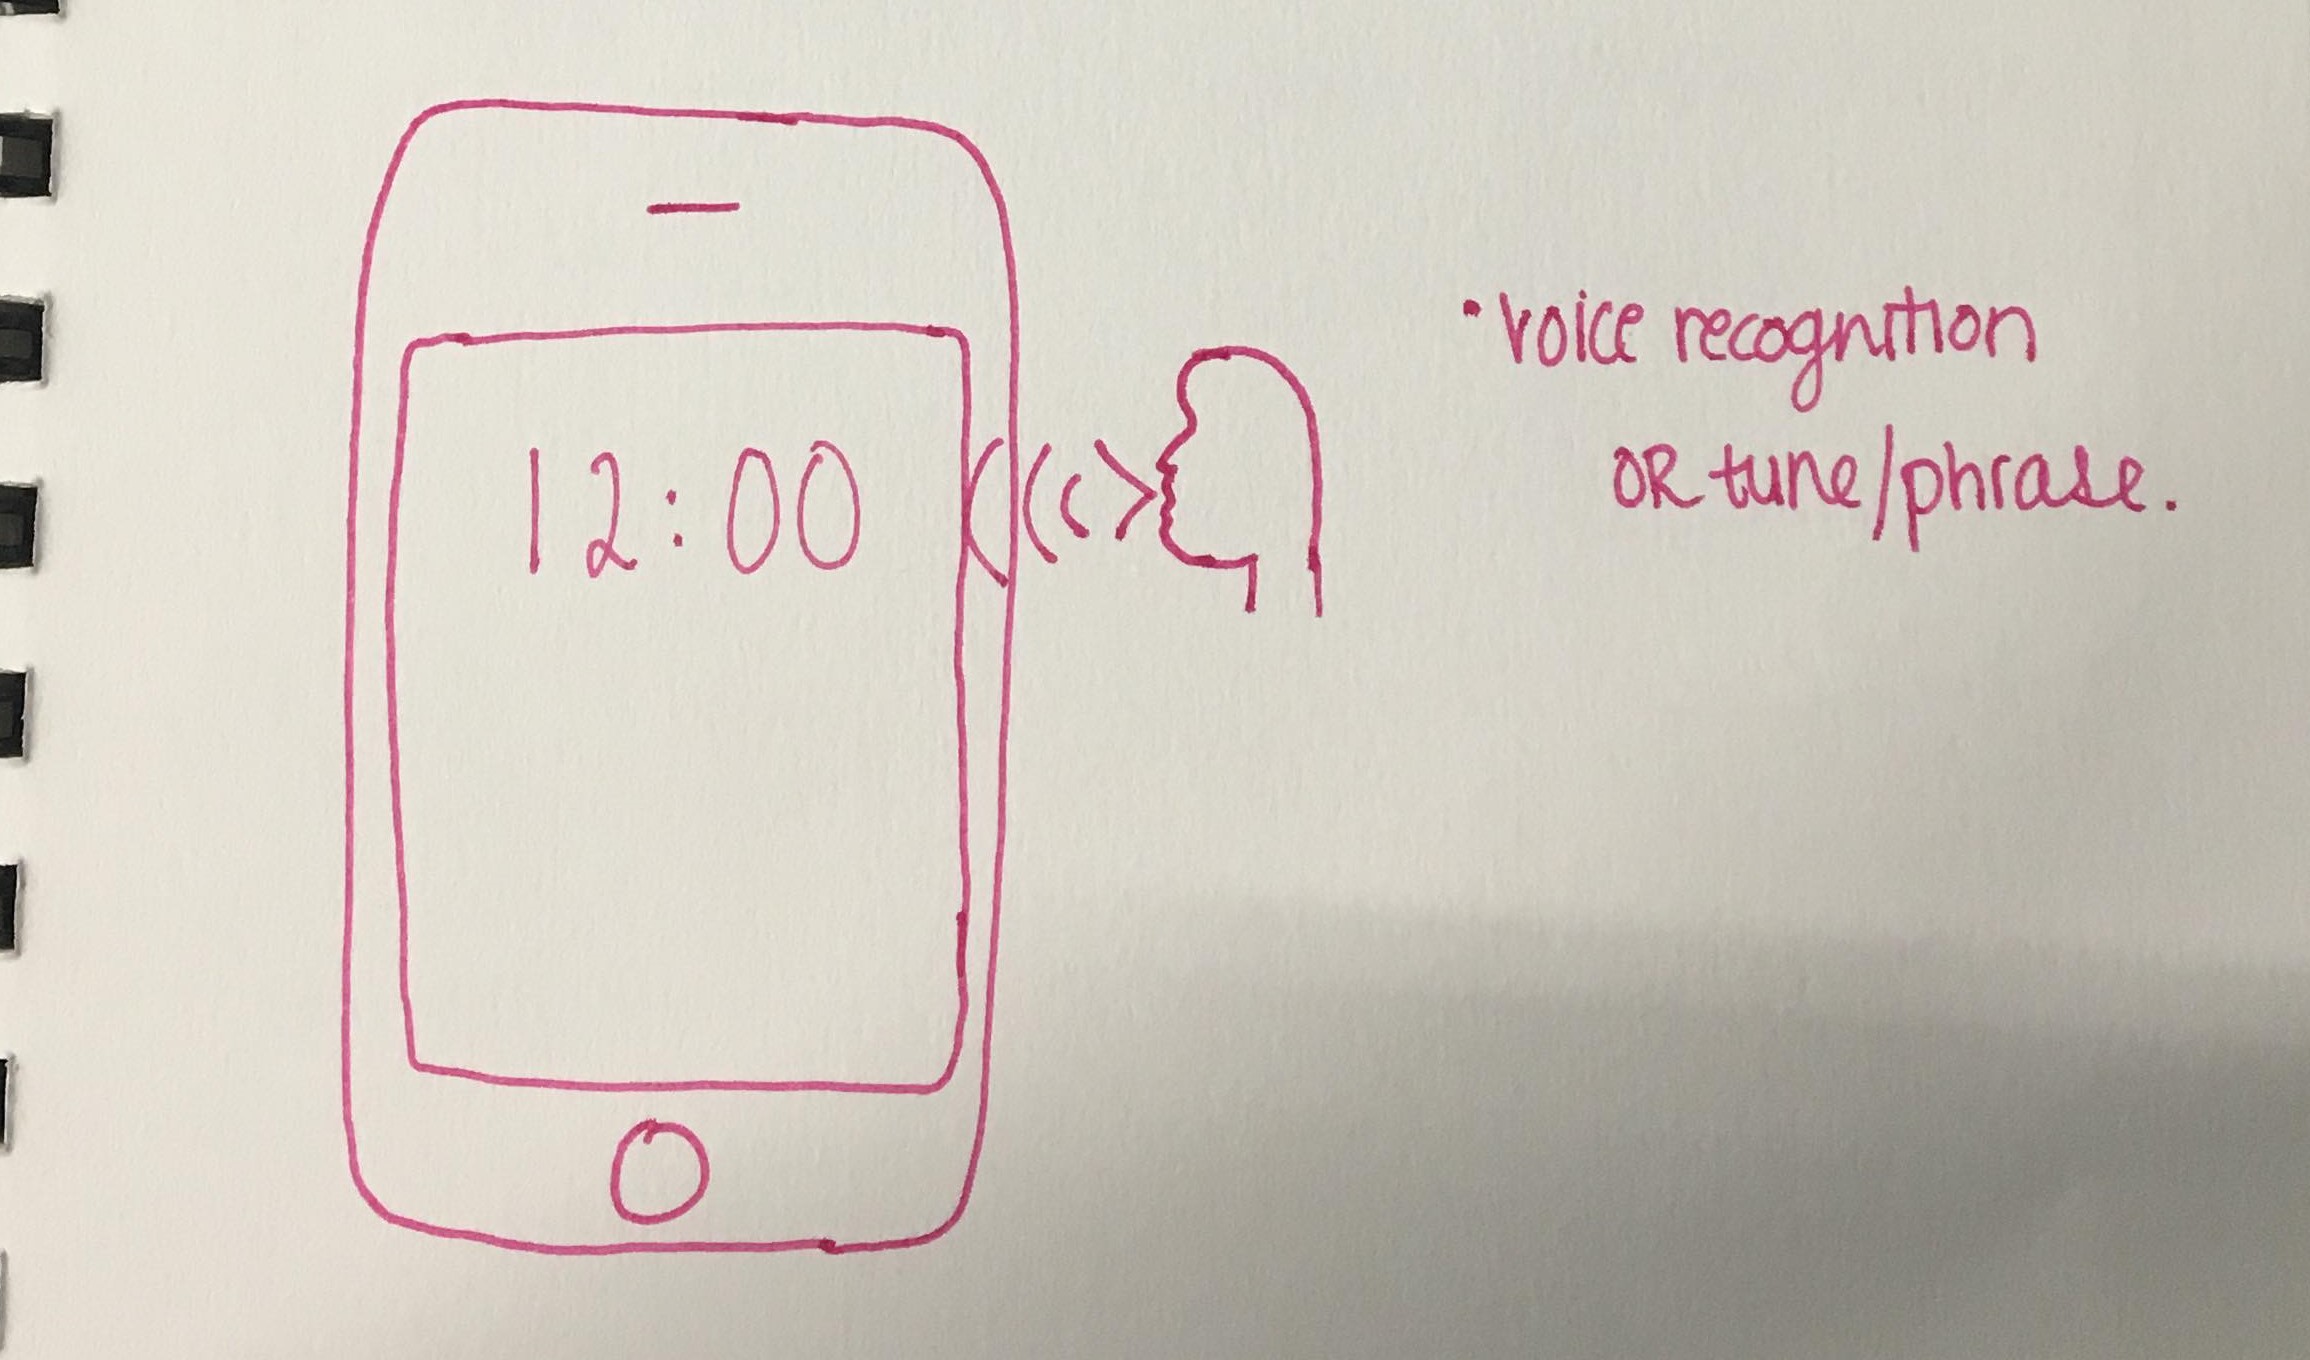 12:00
• voice recognition
OR tune/phrase.